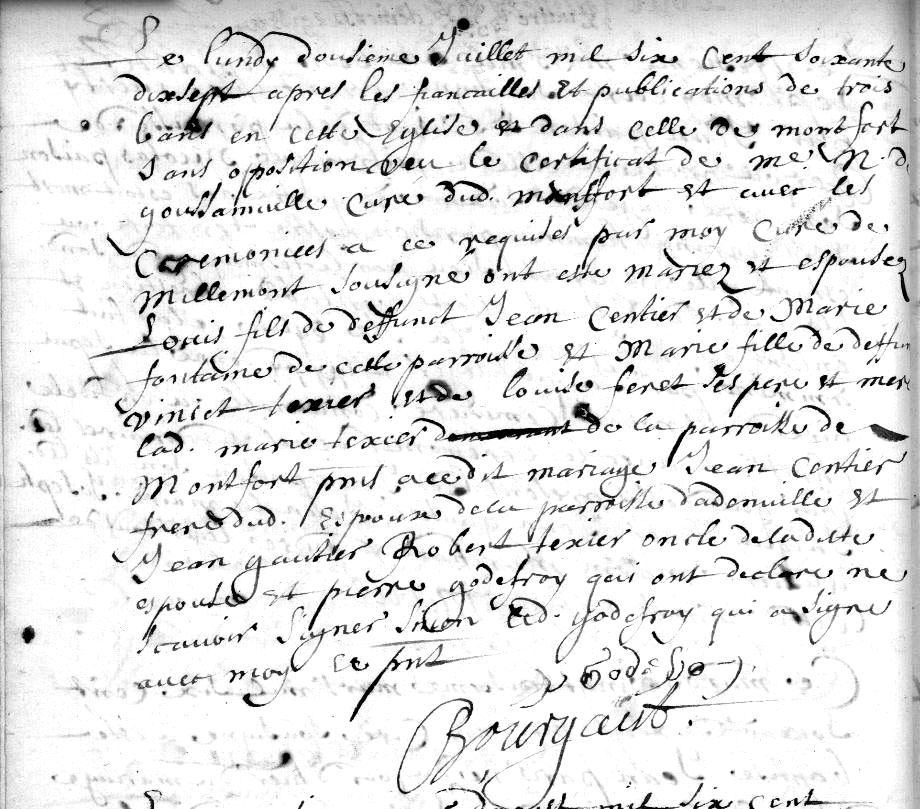 Le lundy dousieme Juillet mil six cent soixante
dixsept apres les fiancailles et publications de trois
bans en cette Eglise et dans celle de montfort
sans oposition veu le certificat de me N. d
goussainville Cure dud. montfort et avec les
Ceremonies a ce requises par moy Cure de
Millemont sousigné ont esté mariez et espousez
Louis fils de deffunct Jean Centier et de Marie
fontaine de cette parroisse et Marie fille de deffun
vincet texier et de louise feret ses pere et mere
lad. marie texier de la parroisse de
Montfort pnts acedit mariage Jean Centier
frere dud. Espoux de la parroisse dadenville et
Jean gautier Robert texier oncle de laditte
espouse et pierre godefroy qui ont declare ne
scavoir signer sinon led. godefroy qui a signe
avec moy le pnt
Bourgaut.
mil six cent